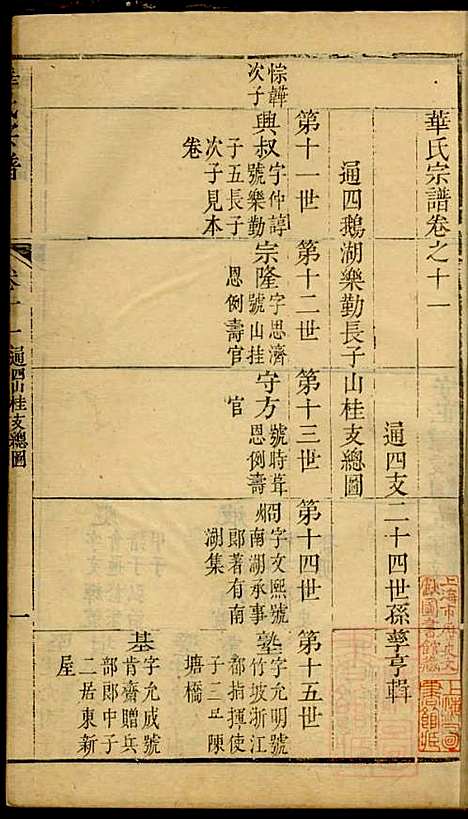 華氏宗譜卷之十一
通四支二十四世孫孳亨輯
通四鵝湖樂勤長子山桂支總圖
第十一世
第十二世
第十三世
第十四世
第十五世
悰韡
次子
興叔
字仲諄
號樂勤
子五長子
次子見本
卷
宗隆
字思濟
號山桂
恩例壽官
守方
號時葺
恩例壽
官
炯
字文熙號
南湖承事
郎著有南
湖集
塾
字允明號
竹坡浙江
都指揮使
子二旦陳
塘橋
基
字允成號
肯齋贈兵
部郎中子
二居東新
屋
華氏宗譜
卷十一
通四山桂支總圖
一
上海市歷史文
獻圖書館藏